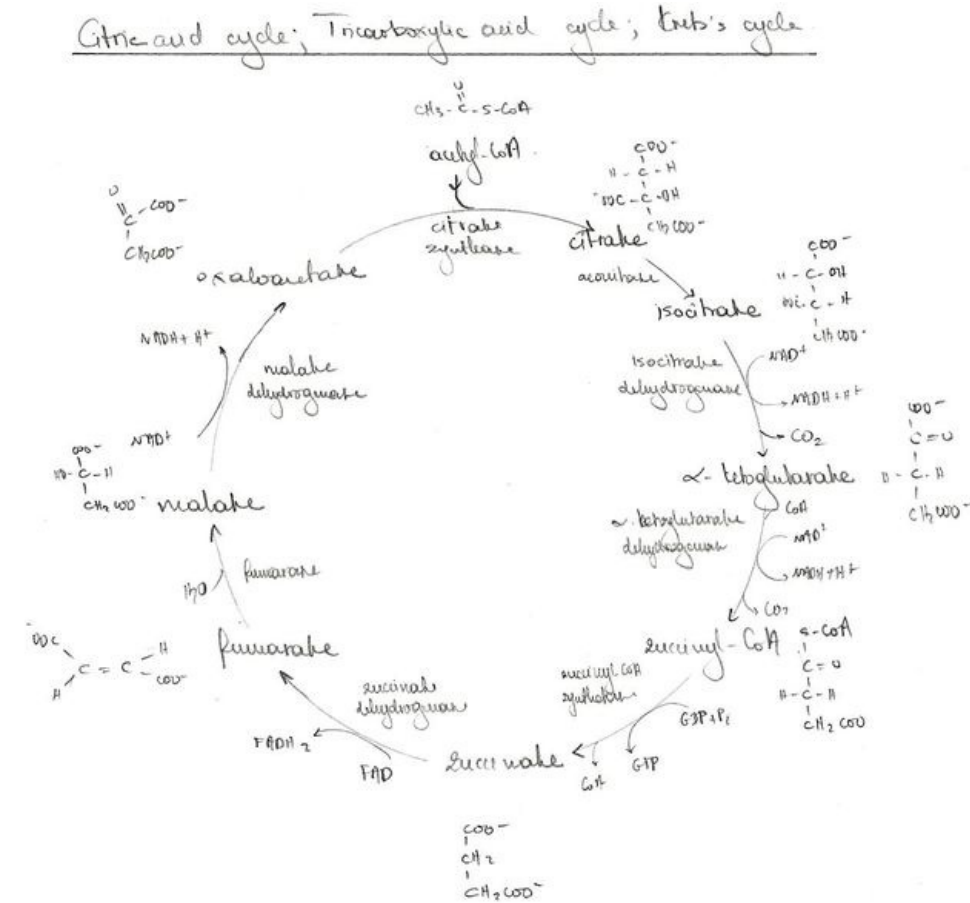 Citric acid cycle; Tricarboxylic acid cycle; Kreb's cycle
O
CH3-C-S-CoA
acetyl-CoA
citrate
synthase
COO-
H-C-H
-OOC-C-OH
CH2COO-
citrate
aconitase
COO-
H-C-OH
-OOC-C-H
CH2COO-
isocitrate
isocitrate
dehydrogenase
NAD+
NADH+H+
CO2
COO-
C=O
H-C-H
CH2COO-
α-ketoglutarate
α-ketoglutarate
dehydrogenase
CoA
NAD+
NADH+H+
CO2
S-CoA
C=O
H-C-H
CH2COO
succinyl-CoA
succinyl CoA
synthetase
GDP+Pi
GTP
CoA
succinate
COO-
CH2
CH2COO-
succinate
dehydrogenase
FAD
FADH2
fumarate
-OOC
H
C=C
H
COO-
fumarase
H2O
malate
COO-
HO-C-H
CH2COO-
malate
dehydrogenase
NAD+
NADH+H+
oxaloacetate
O
C-COO-
CH2COO-